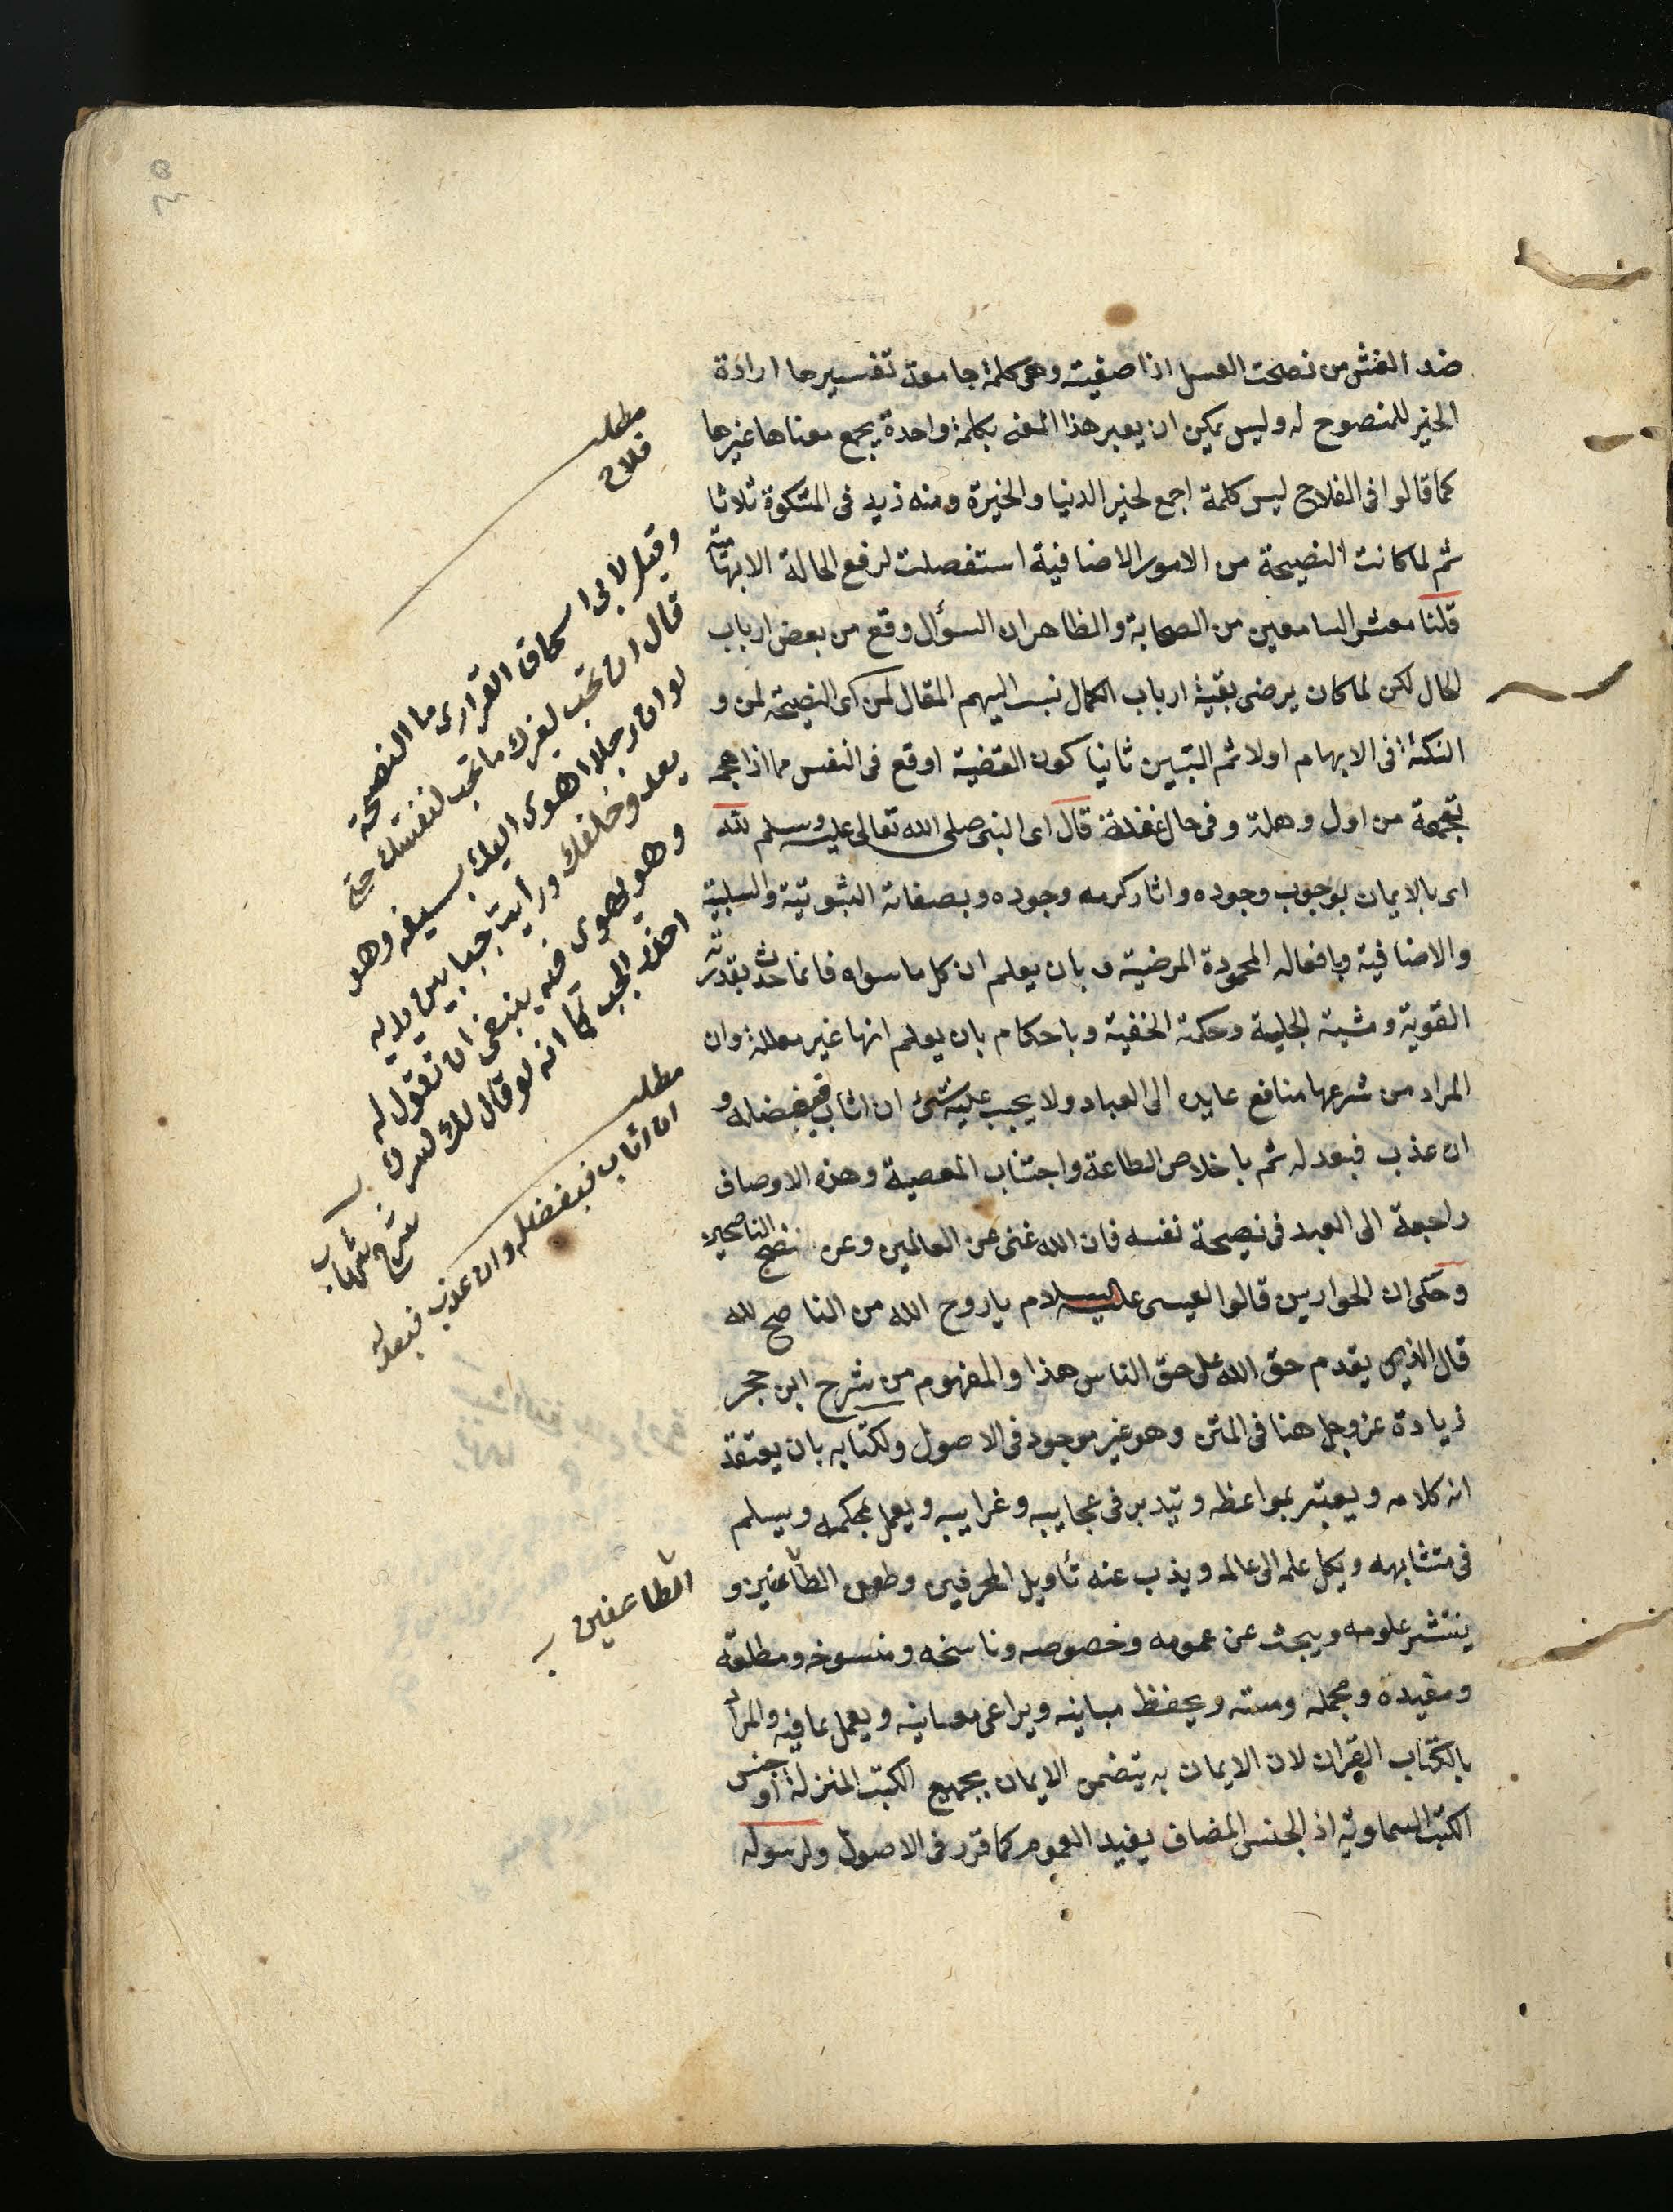 ضد الغش من نصحت العسل اذا صفيته وهى كلمة جامعة تفسيرها ارادة
الخير للمنصوح له وليس يمكن ان يعبر هذا المعنى بكلمة واحدة يجمع معناها غيرها
كما قالوا فى الفلاح ليس كلمة اجمع لخير الدنيا والخيرة ومنه زيد فى المشكوة ثلاثا
ثم لما كانت النصيحة من الامور الاضافية استفصلت لرفع الحالة الابهامية
قلنا معشر السامعين من الصحابة والظاهر ان السؤال وقع من بعض ارباب
الحال لكن لما كان يرضى بقية ارباب الكمال نسب اليهم المقال لمن اى النصيحة لمن و
النكتة فى الابهام اولا ثم التبيين ثانيا كون القضية اوقع فى النفس مما اذا هجمه
من اول وهلة وفى حال غفلة قال اى النبى صلى الله تعالى عليه وسلم لله
اى بالايمان بوجوب وجوده واثار كرمه وجوده وبصفاته الثبوتية والسلبية
والاضافية وبافعاله المحمودة المرضية وبان يعلم ان كل ما سواه فانما حدث بقدرته
القوية ومشيته الجلية وحكمته الخفية وباحكام بان يعلم انها غير معللة وان
المراد من شرعها منافع عايده الى العباد ولا يجب عليه شئ ان اثاب فبفضله و
ان عذب فبعدله ثم باخلاص الطاعة واجتناب المعصية وهذه الاوصاف
راجعة الى العبد فى نصيحة نفسه فان الله غنى عن العالمين وعن نصح الناصحين
وحكى ان الحواريين قالوا لعيسى عليه السلام ياروح الله من الناصح لله
قال الذى يقدم حق الله على حق الناس هذا والمفهوم من شرح ابن حجر
زيادة عز وجل هنا فى المتن وهو غير موجود فى الاصول ولكتابه بان يعتقد
انه كلامه ويعتبر بمواعظه ويتدبر فى عجايبه وغرايبه ويعمل بمحكمه ويسلم
فى متشابهه ويكل علمه الى عالمه ويذب عنه تأويل المحرفين وطعن الطاعنين و
ينتشر علومه ويبحث عن عمومه وخصوصه وناسخه ومنسوخه ومطلقه
ومقيده ومجمله ويحفظ مبانيه ويراعى معانيه ويعمل بما فيه والمراد
بالكتاب القران لان الايمان به يتضمن الايمان بجميع الكتب المنزلة او جنس
الكتب السماوية اذ الجنس المضاف يفيد العموم كما قرر فى الاصول ولرسوله
مطلب
فلاح
وقيل لابى اسحاق الفزارى ما النصيحة
قال ان تحب لغيرك ما تحب لنفسك حتى
لو ان رجلا اهوى اليك بسيفه وهو
يعدو خلفك ورأيت جبا بين يديه
وهو يهوى فيه ينبغى ان تقول له
احذر الجب كما انه لو قال لك لسرك
شرح شهاب
مطلب
ان اثاب فبفضله وان عذب فبعدله
الطاعنين